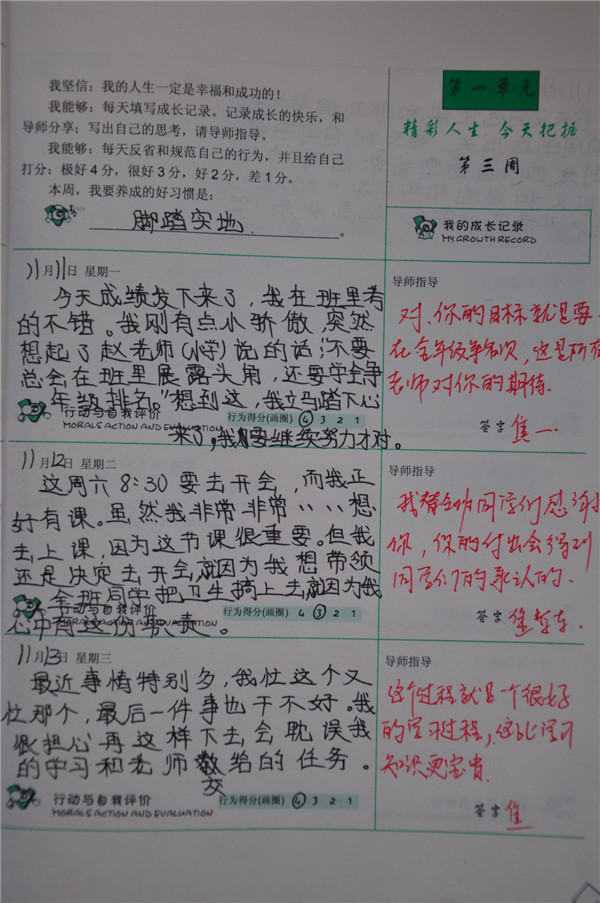 我坚信：我的人生一定是幸福和成功的！
我能够：每天填写成长记录。记录成长的快乐，和
导师分享；写出自己的思考，请导师指导。
我能够：每天反省和规范自己的行为，并且给自己
打分：极好4分，很好3分，好2分，差1分。
本周，我要养成的好习惯是：
脚踏实地。
第一单元
精彩人生 今天把握
第三周
我的成长记录
MY GROWTH RECORD
11月11日 星期一
今天成绩发下来了，我在班里考
的不错。我刚有点小骄傲，突然
想起了赵老师(小学)说的话:"不要
总会在班里展露头角，还要学会争
年级排名。"想到这，我立马踏下心
来了，我要继续努力才对。
行动与自我评价
MORALS ACTION AND EVALUATION
行为得分(画圈) 4 3 2 1
导师指导
对、你的目标就是要
在全年级争名次，这是所有
老师对你的期待.
签字 焦一.
11月12日 星期二
这周六8:30要去开会，而我正
好有课。虽然我非常非常、、、想
去上课，因为这节课很重要。但我
还是决定去开会，就因为我想带领
全班同学把卫生搞上去，就因为我
心中有这份职责。
行动与自我评价
MORALS ACTION AND EVALUATION
行为得分(画圈) 4 3 2 1
导师指导
我替全班同学们感谢
你，你的付出会得到
同学们的承认的.
签字 焦
11月13日 星期三
最近事情特别多，我忙这个又
忙那个，最后一件事也干不好。我
很担心再这样下去，会耽误我
的学习和老师交给的任务。
行动与自我评价
MORALS ACTION AND EVALUATION
行为得分(画圈) 4 3 2 1
导师指导
这个过程就是一个很好
的学习过程，这比学习
知识更宝贵.
签字 焦